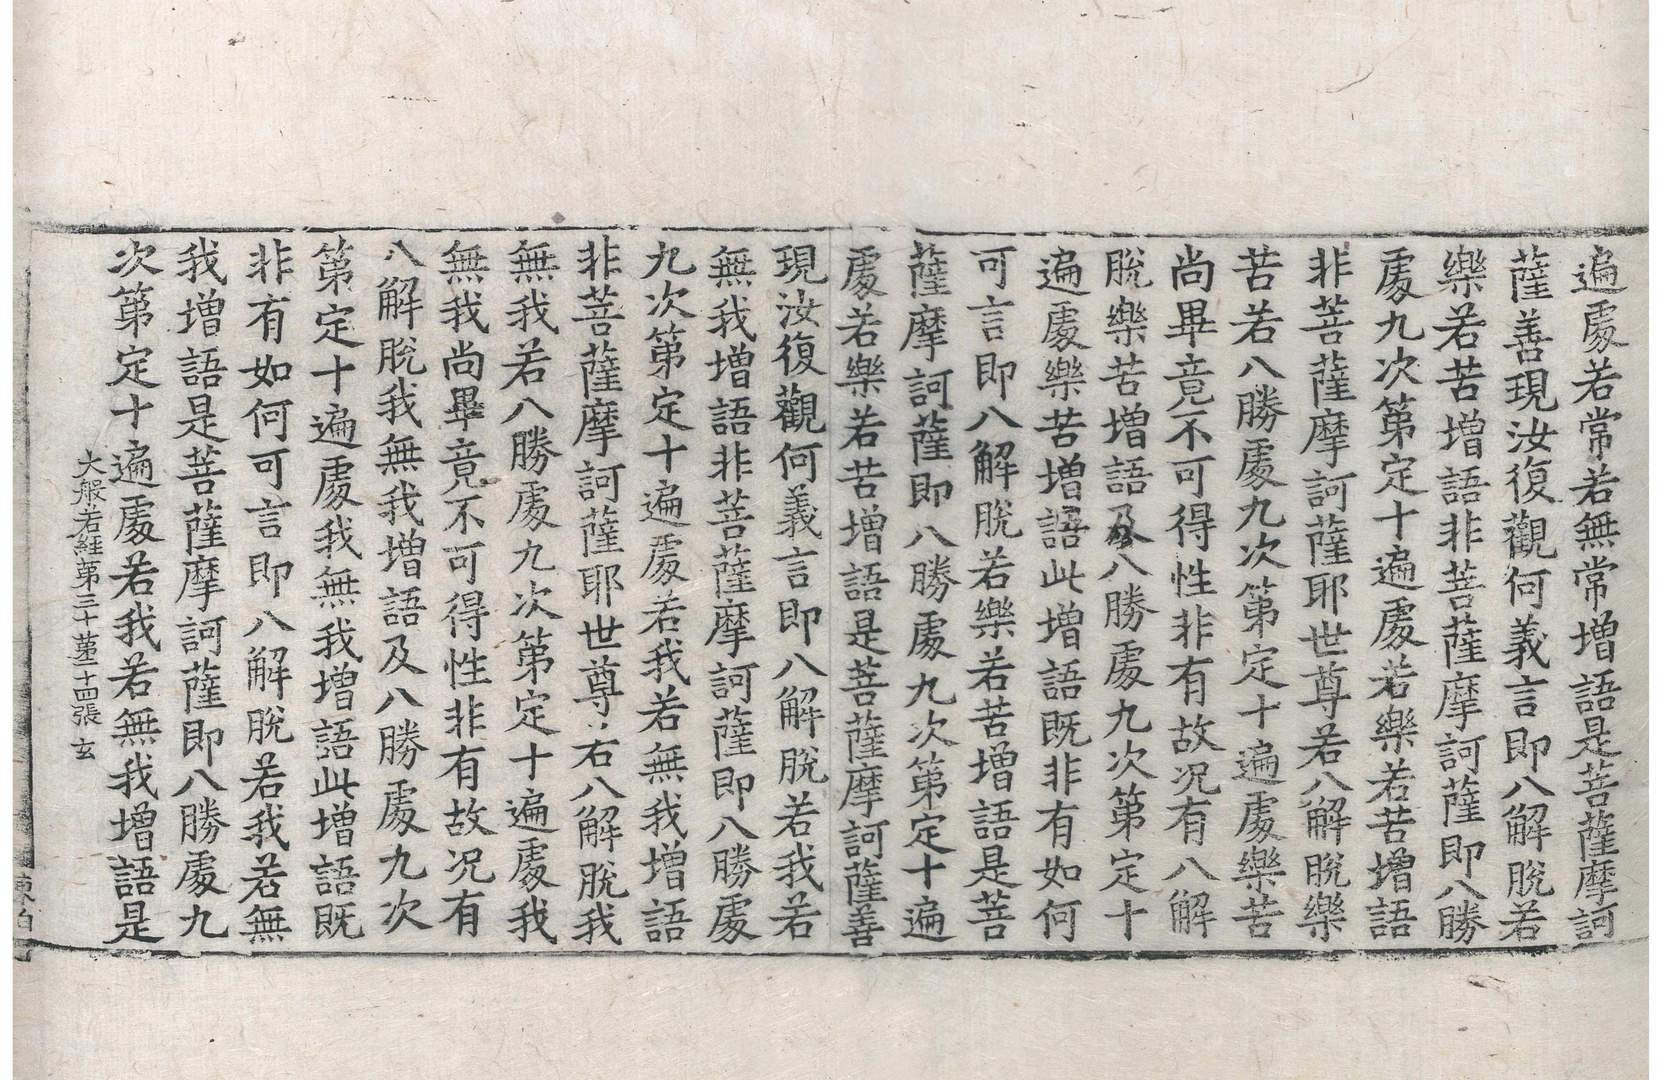 遍處若常若無常增語是菩薩摩訶
薩善現汝復觀何義言即八解脫若
樂若苦增語非菩薩摩訶薩即八勝
處九次第定十遍處若樂若苦增語
非菩薩摩訶薩耶世尊若八解脫樂
苦若八勝處九次第定十遍處樂苦
尚畢竟不可得性非有故况有八解
脫樂苦增語及八勝處九次第定十
遍處樂苦增語此增語既非有如何
可言即八解脫若樂若苦增語是菩
薩摩訶薩即八勝處九次第定十遍
處若樂若苦增語是菩薩摩訶薩善
現汝復觀何義言即八解脫若我若
無我增語非菩薩摩訶薩即八勝處
九次第定十遍處若我若無我增語
非菩薩摩訶薩耶世尊右八解脫我
無我若八勝處九次第定十遍處我
無我尚畢竟不可得性非有故况有
八解脫我無我增語及八勝處九次
第定十遍處我無我增語此增語既
非有如何可言即八解脫若我若無
我增語是菩薩摩訶薩即八勝處九
次第定十遍處若我若無我增語是
大般若經第三十 第二十四張 玄